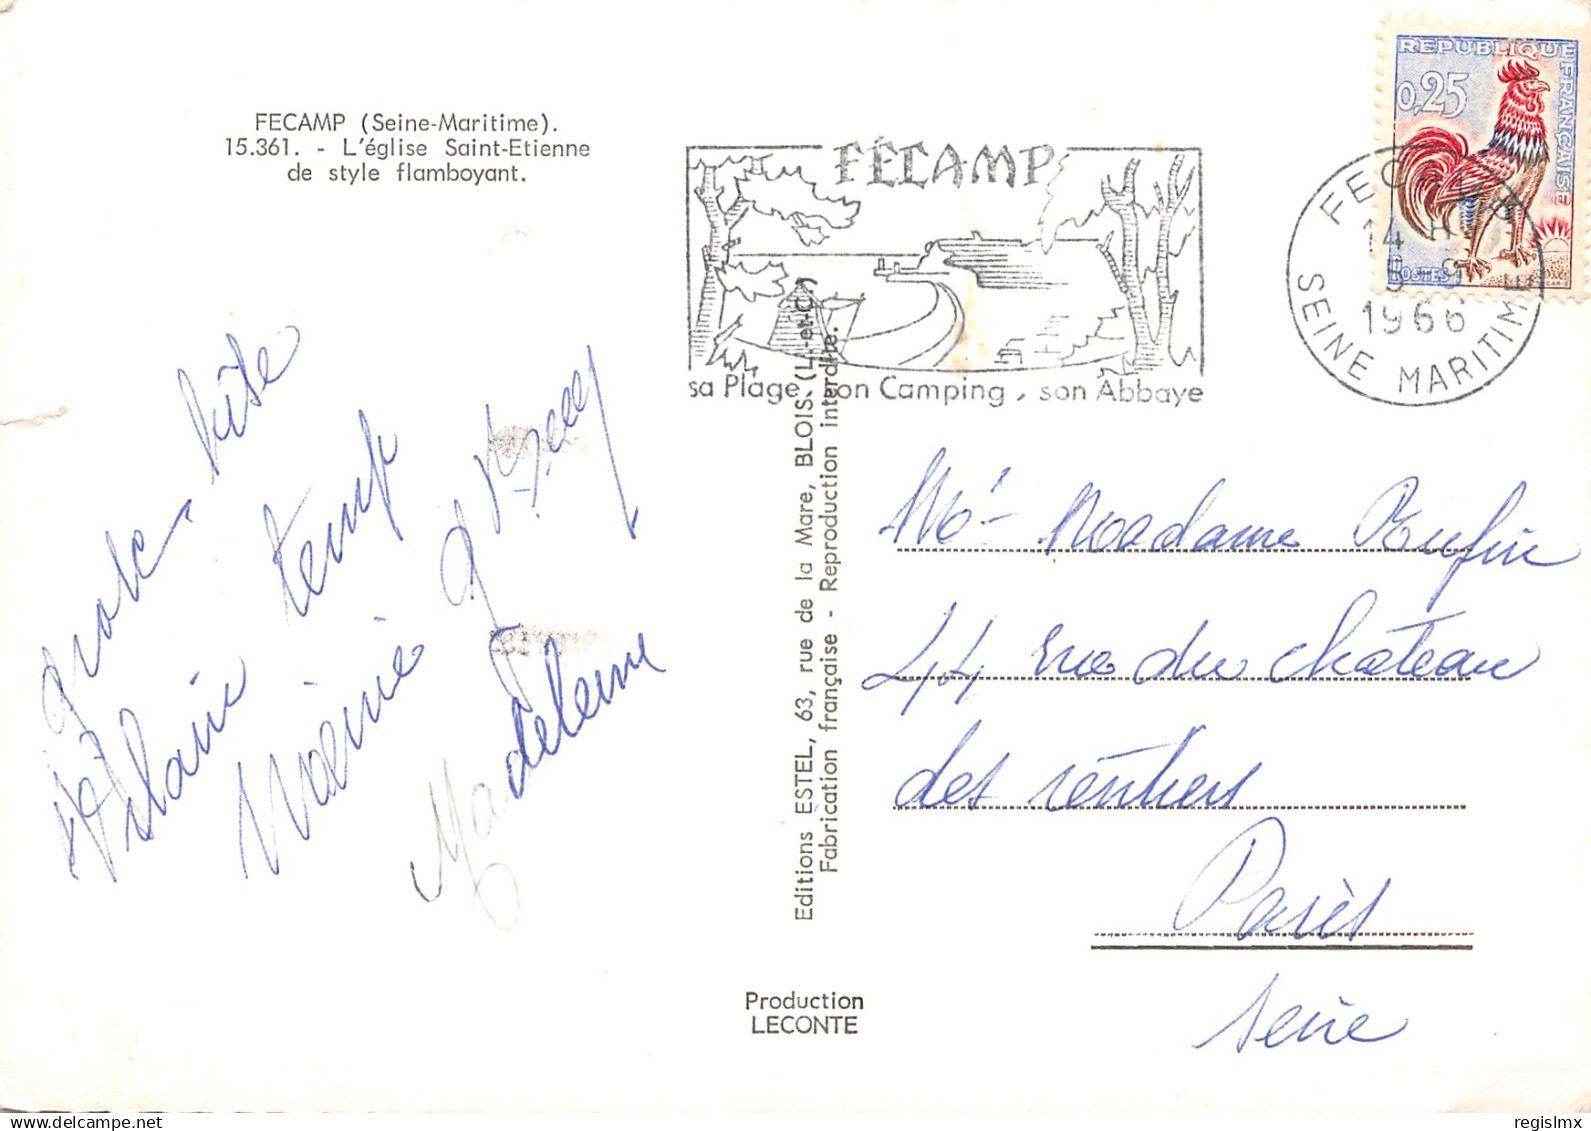 FECAMP (Seine-Maritime).
15.361. - L'église Saint-Etienne
de style flamboyant.
temp
Madeleine
Editions ESTEL, 63, rue de la Mare, BLOIS. (L.-et-C.)
Fabrication française - Reproduction interdite.
Production
LECONTE
FÉCAMP
sa Plage, son Camping, son Abbaye
FECAMP
14 H
1966
SEINE MARITIME
REPUBLIQUE FRANÇAISE
0,25
POSTES
Madame Rufin
44 rue du chateau
des rentiers
Paris
Seine
regislmx